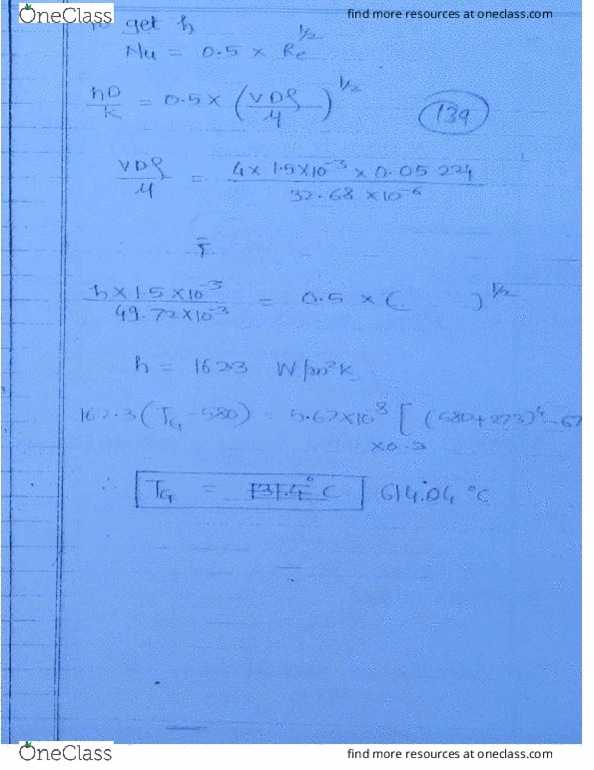 OneClass
find more resources at oneclass.com
To get h
Nu = 0.5 × Re^1/2
hD/K = 0.5 × (VDρ/μ)^1/2
139
VDρ/μ = 4 × 1.5×10^-3 × 0.05 224 / 32.68 ×10^-6
h × 1.5 ×10^-3 / 49.72×10^-3 = 0.5 × ( )^1/2
h = 162.3 W/m²K
162.3 (TG - 580) = 5.67×10^8 [ (580+273)^4 - 67
×0.3
∴ TG = 731.4°C 614.04 °C
OneClass
find more resources at oneclass.com